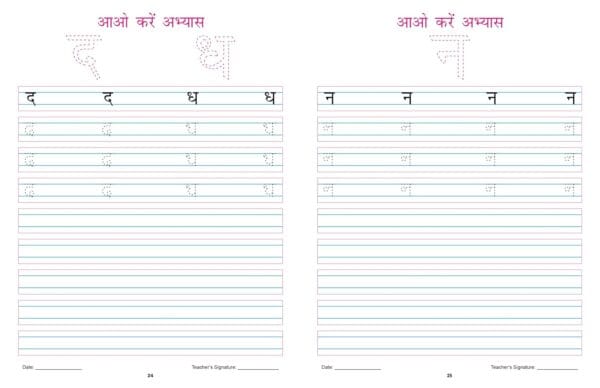 आओ करें अभ्यास
द ध
द द ध ध
द द ध ध
द द ध ध
द द ध ध
Date:
Teacher's Signature:
24
आओ करें अभ्यास
न
न न न न
न न न न
न न न न
न न न न
Date:
Teacher's Signature:
25